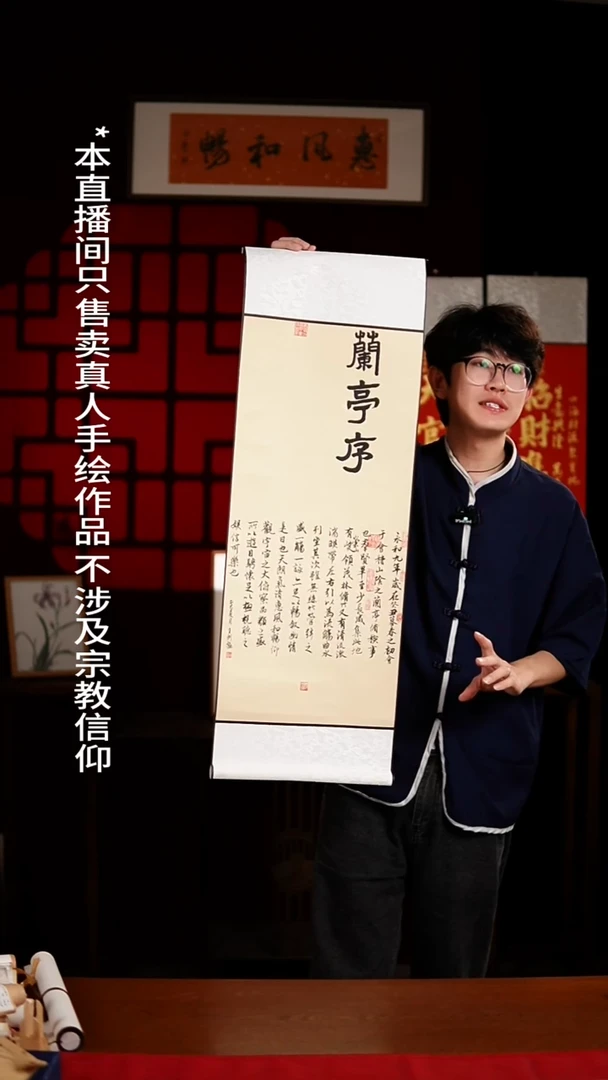 *本直播间只售卖真人手绘作品 不涉及宗教信仰
惠风和暢
蘭亭序
永和九年歲在癸丑暮春之初會
于會稽山陰之蘭亭脩禊事
也群賢畢至少長咸集此地
有峻領茂林脩竹又有清流激
湍映帶左右引以為流觴曲水
列坐其次雖無絲竹管弦之
盛一觴一詠亦足以暢敘幽情
是日也天朗氣清惠風和暢仰
觀宇宙之大俯察品類之盛
所以遊目騁懷足以極視聽之
娛信可樂也
招財進